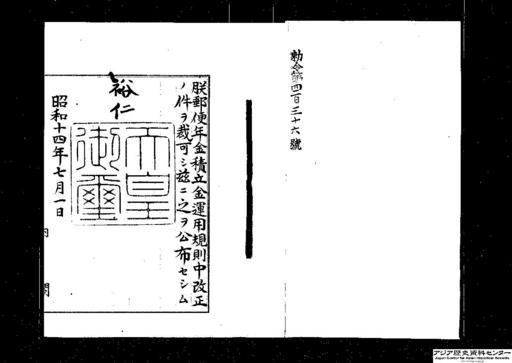 勅令第四百三十六號
朕郵便年金積立金運用規則中改正
ノ件ヲ裁可シ茲ニ之ヲ公布セシム
裕仁
天皇御璽
昭和十四年七月一日
内閣
アジア歴史資料センター
Japan Center for Asian Historical Records